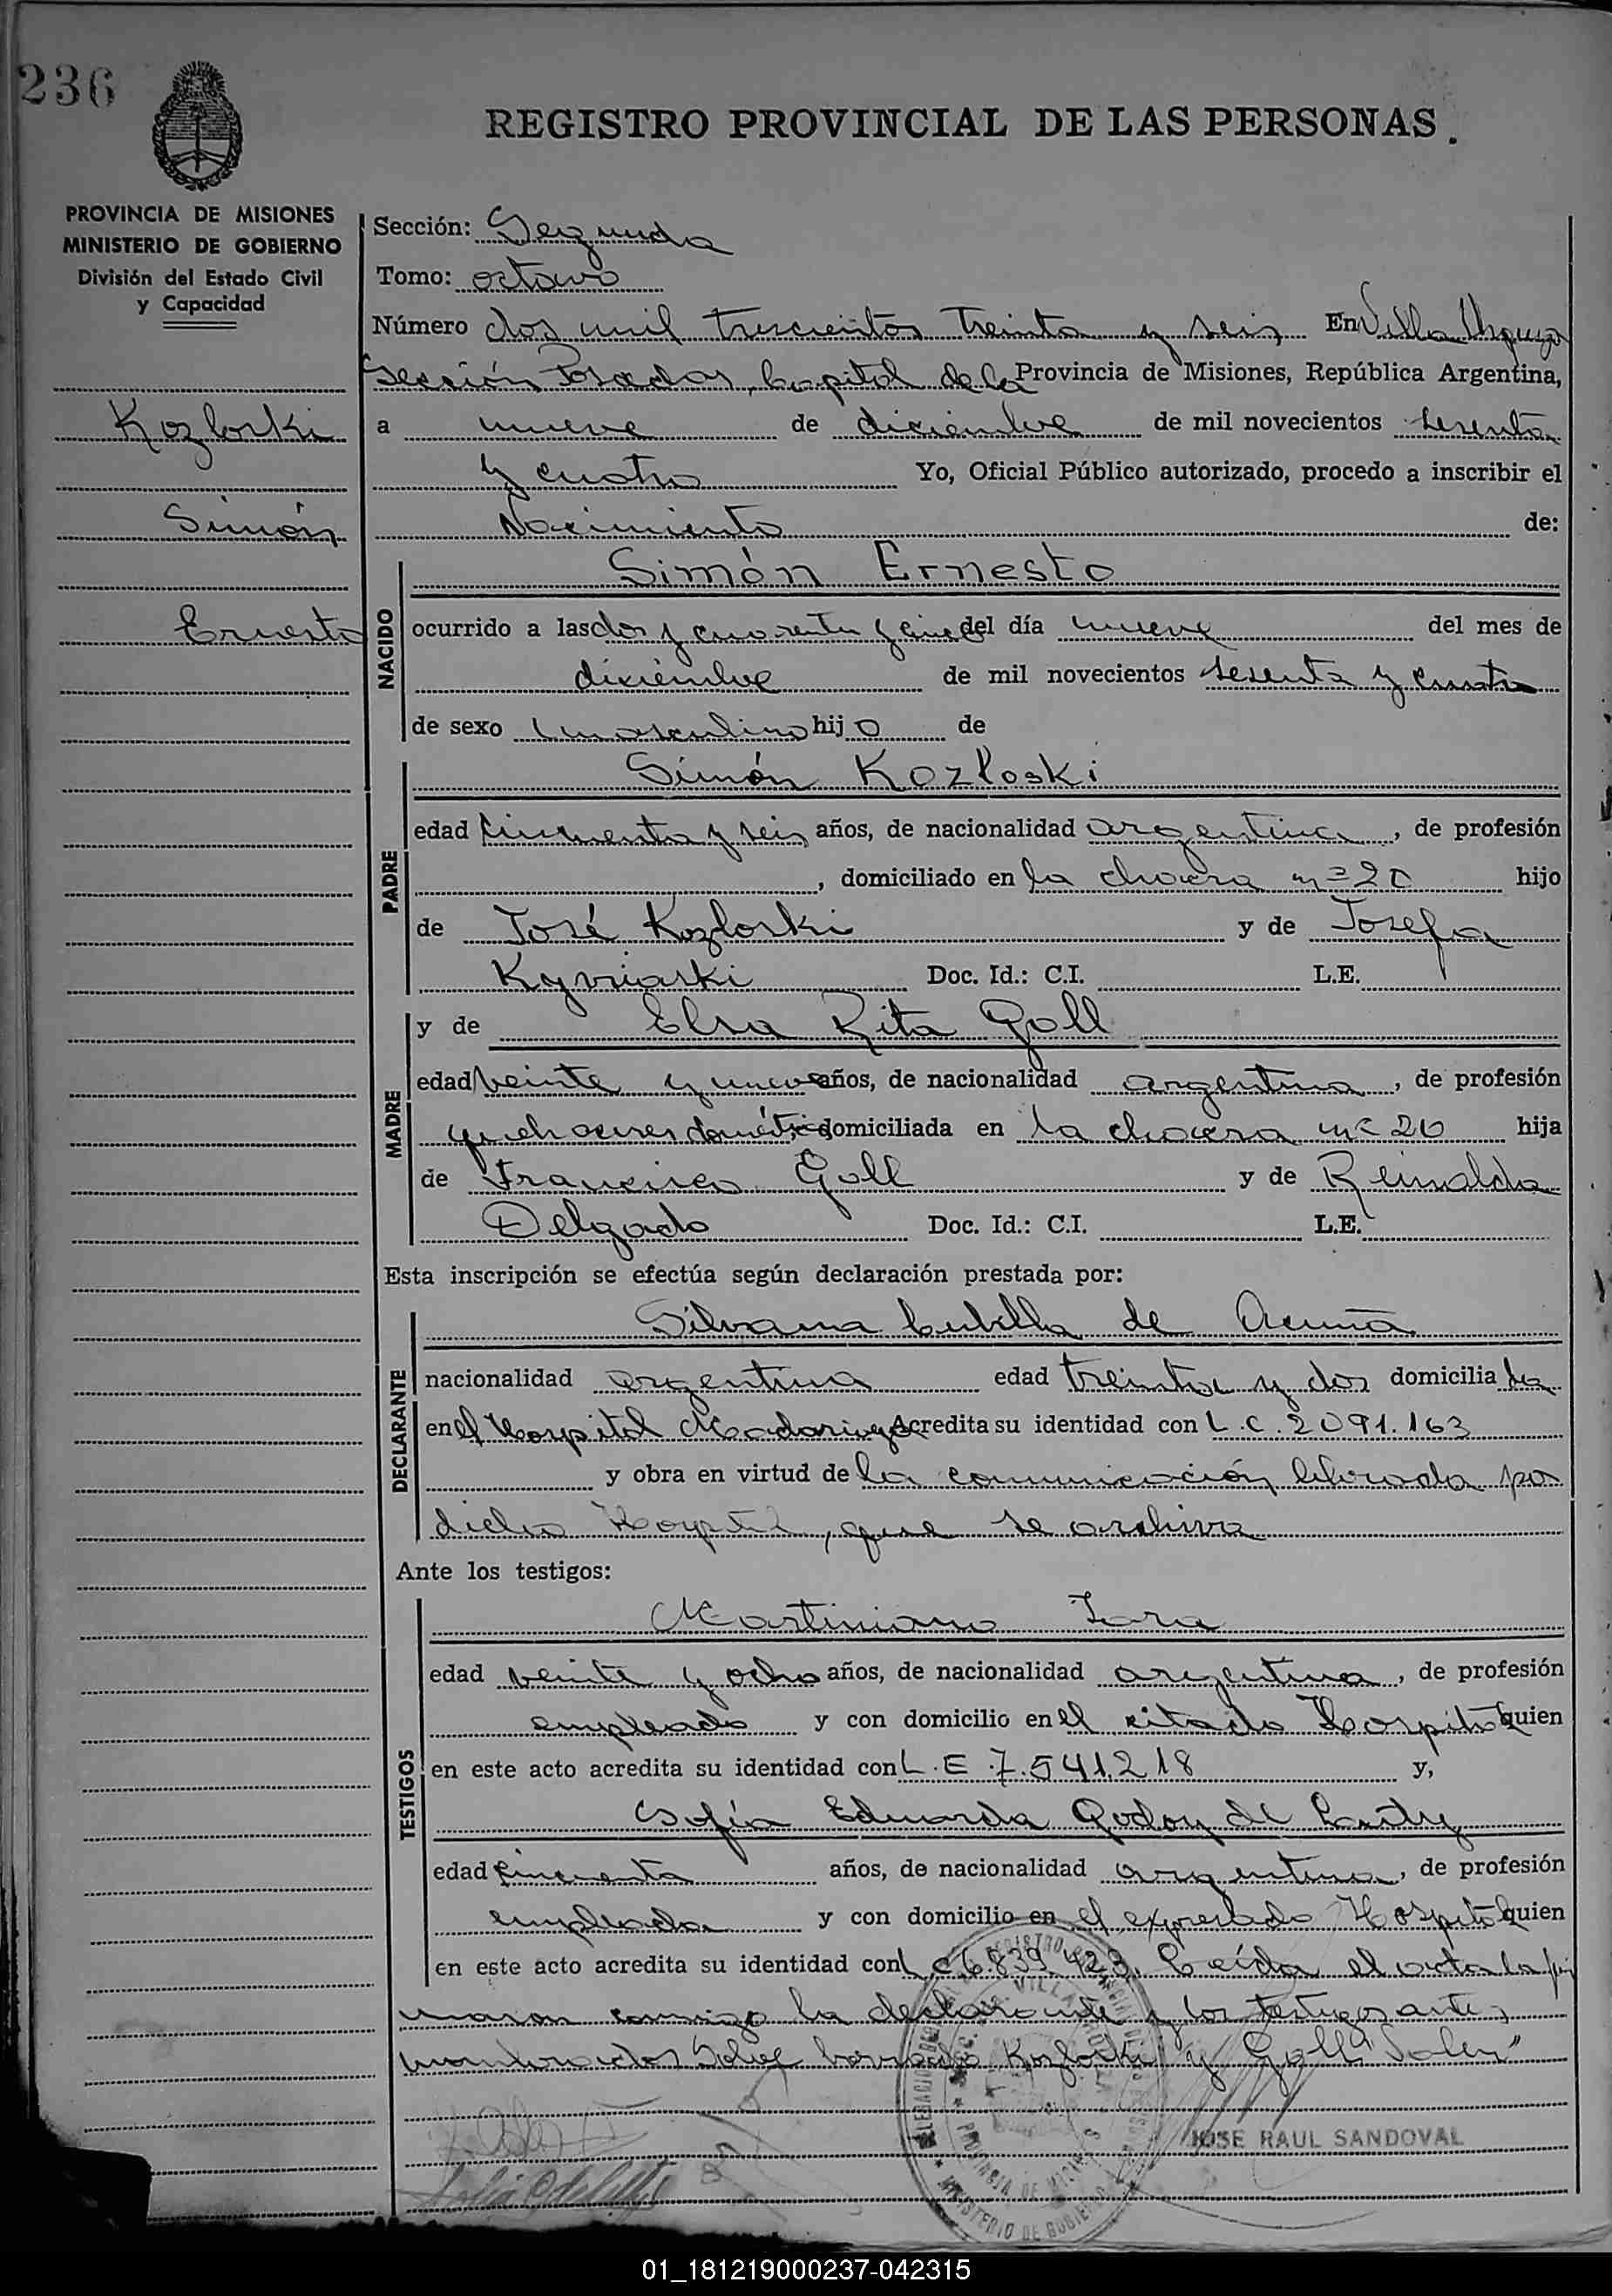 236
REGISTRO PROVINCIAL DE LAS PERSONAS.
PROVINCIA DE MISIONES
MINISTERIO DE GOBIERNO
División del Estado Civil
y Capacidad
Kozloski
Simón
Ernesto
Sección: Segunda
Tomo: octavo
Número dos mil trescientos treinta y seis En Villa Urquiza
Sección Posadas, Capital de la Provincia de Misiones, República Argentina,
a nueve de diciembre de mil novecientos sesenta
y cuatro Yo, Oficial Público autorizado, procedo a inscribir el
Nacimiento de:
NACIDO
Simón Ernesto
ocurrido a las dos y cuarenta y cinco del día nueve del mes de
diciembre de mil novecientos sesenta y cuatro
de sexo masculino hijo de
PADRE
Simón Kozłoski
edad cincuenta y seis años, de nacionalidad argentina, de profesión
, domiciliado en la chacra nº 20 hijo
de José Kozloski y de Josefa
Doc. Id.: C.I. L.E.
MADRE
y de Elsa Rita Goll
edad veinte y nueve años, de nacionalidad argentina, de profesión
quehaceres domésticos domiciliada en la chacra nº 20 hija
de Francisco Goll y de Reinalda
Delgado Doc. Id.: C.I. L.E.
Esta inscripción se efectúa según declaración prestada por:
DECLARANTE
Silvana Cubilla de Acuña
nacionalidad argentina edad treinta y dos domiciliada
en el Hospital Madariaga Acredita su identidad con L.C. 2091.163
y obra en virtud de la comunicación librada por
dicho Hospital, que se archiva
Ante los testigos:
TESTIGOS
Martiniano Lara
edad veinte y ocho años, de nacionalidad argentina, de profesión
empleado y con domicilio en el citado Hospital quien
en este acto acredita su identidad con L.E. 7.541.218 y,
Sofía Eduarda Godoy de
edad cincuenta años, de nacionalidad argentina, de profesión
empleada y con domicilio en el expresado Hospital quien
en este acto acredita su identidad con L.C 6.839.423. Leída el acta la fir
maron conmigo la declarante y los testigos ante
nombrados Sobre borrado Kozloski y Goll "Valen"
JOSE RAUL SANDOVAL
PROVINCIA DE MISIONES
MINISTERIO DE GOBIERNO
01_181219000237-042315